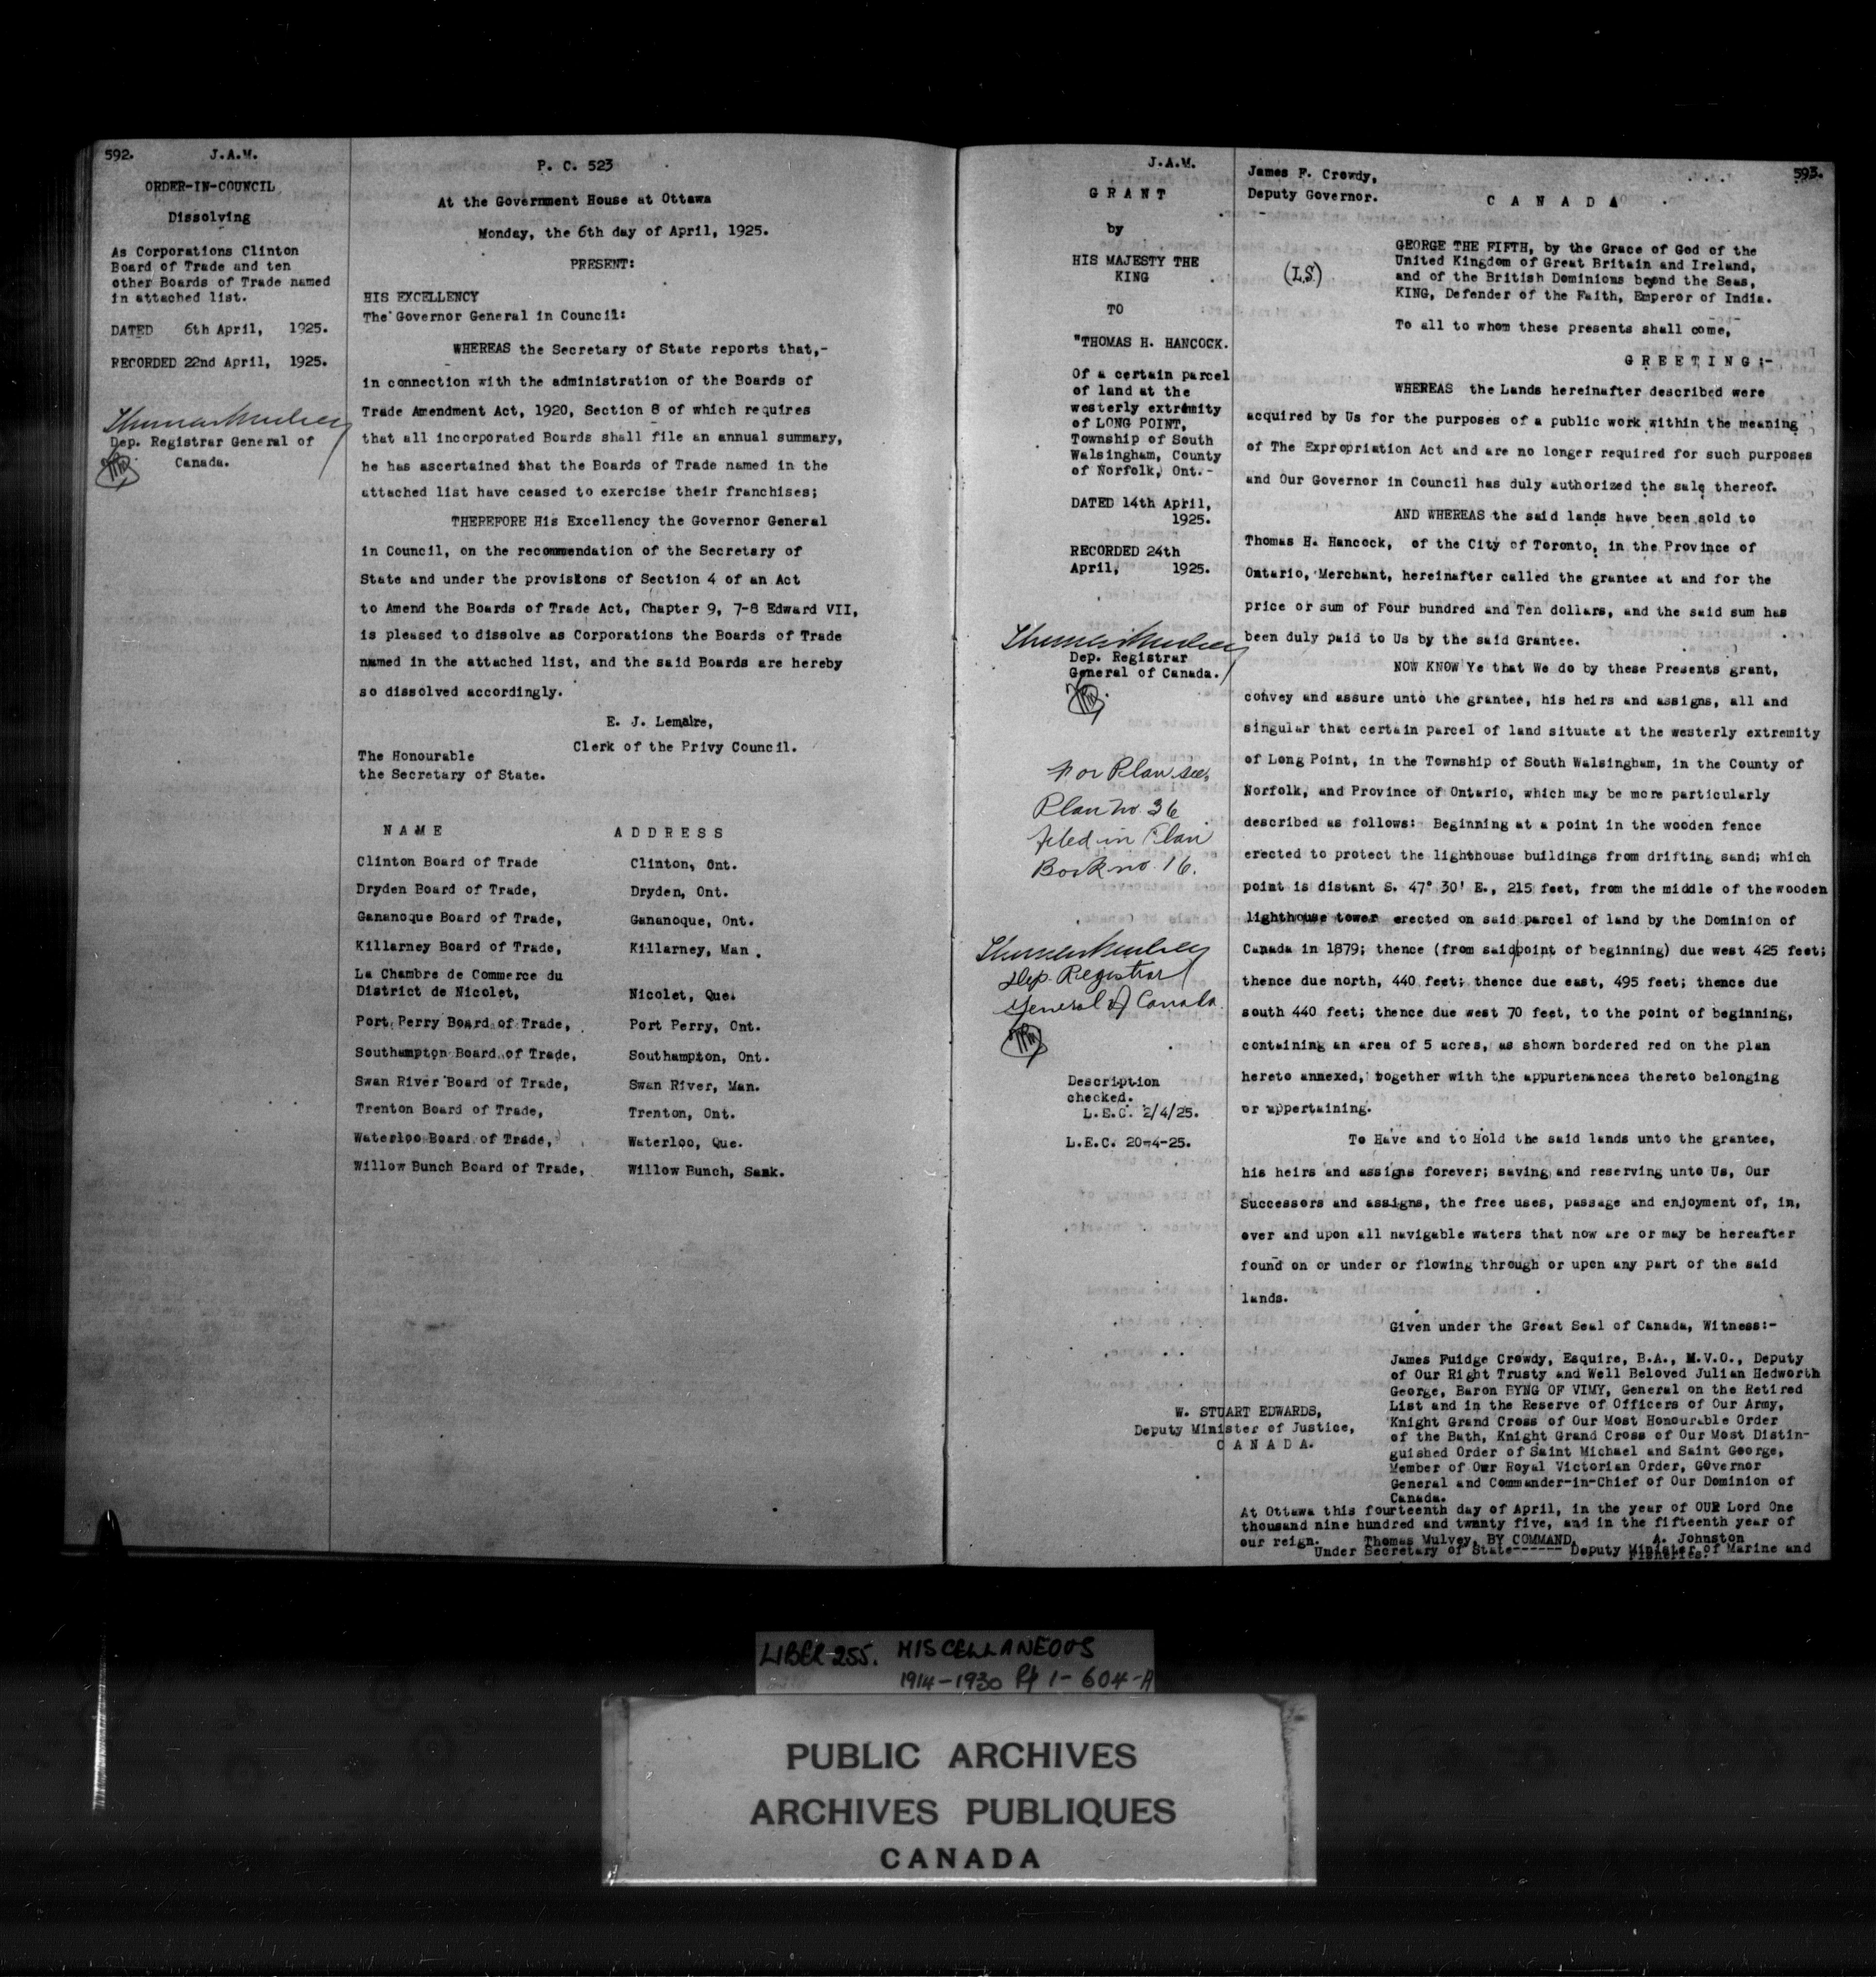 592.
J.A.M.
ORDER-IN-COUNCIL
Dissolving
As Corporations Clinton
Board of Trade and ten
other Boards of Trade named
in attached list.
DATED 6th April, 1925.
RECORDED 22nd April, 1925.
Thomas Mulvey
Dep. Registrar General of
Canada.
P. C. 523
At the Government House at Ottawa
Monday, the 6th day of April, 1925.
PRESENT:
HIS EXCELLENCY
The Governor General in Council:
WHEREAS the Secretary of State reports that,-
in connection with the administration of the Boards of
Trade Amendment Act, 1920, Section 8 of which requires
that all incorporated Boards shall file an annual summary,
he has ascertained that the Boards of Trade named in the
attached list have ceased to exercise their franchises;
THEREFORE His Excellency the Governor General
in Council, on the recommendation of the Secretary of
State and under the provisions of Section 4 of an Act
to Amend the Boards of Trade Act, Chapter 9, 7-8 Edward VII,
is pleased to dissolve as Corporations the Boards of Trade
named in the attached list, and the said Boards are hereby
so dissolved accordingly.
E. J. Lemaire,
Clerk of the Privy Council.
The Honourable
the Secretary of State.
N A M E A D D R E S S
Clinton Board of Trade Clinton, Ont.
Dryden Board of Trade, Dryden, Ont.
Gananoque Board of Trade, Gananoque, Ont.
Killarney Board of Trade, Killarney, Man.
La Chambre de Commerce du
District de Nicolet, Nicolet, Que.
Port Perry Board of Trade, Port Perry, Ont.
Southampton Board of Trade, Southampton, Ont.
Swan River Board of Trade, Swan River, Man.
Trenton Board of Trade, Trenton, Ont.
Waterloo Board of Trade, Waterloo, Que.
Willow Bunch Board of Trade, Willow Bunch, Sask.
J.A.M.
G R A N T
by
HIS MAJESTY THE
KING
TO
"THOMAS H. HANCOCK.
Of a certain parcel
of land at the
westerly extremity
of LONG POINT,
Township of South
Walsingham, County
of Norfolk, Ont.-
DATED 14th April,
1925.
RECORDED 24th
April, 1925.
Thomas Mulvey
Dep. Registrar
General of Canada.
For Plan see,
Plan no. 36
filed in Plan
Book no. 16.
Thomas Mulvey
Dep. Registrar
General of Canada.
Description
checked.
L.E.C. 2/4/25.
L.E.C. 20-4-25.
593.
James F. Crowdy,
Deputy Governor.
C A N A D A
(L.S)
GEORGE THE FIFTH, by the Grace of God of the
United Kingdom of Great Britain and Ireland,
and of the British Dominions beyond the Seas,
KING, Defender of the Faith, Emperor of India.
To all to whom these presents shall come,
G R E E T I N G :-
WHEREAS the Lands hereinafter described were
acquired by Us for the purposes of a public work within the meaning
of The Expropriation Act and are no longer required for such purposes
and Our Governor in Council has duly authorized the sale thereof.
AND WHEREAS the said lands have been sold to
Thomas H. Hancock, of the City of Toronto, in the Province of
Ontario, Merchant, hereinafter called the grantee at and for the
price or sum of Four hundred and Ten dollars, and the said sum has
been duly paid to Us by the said Grantee.
NOW KNOW Ye that We do by these Presents grant,
convey and assure unto the grantee, his heirs and assigns, all and
singular that certain parcel of land situate at the westerly extremity
of Long Point, in the Township of South Walsingham, in the County of
Norfolk, and Province of Ontario, which may be more particularly
described as follows: Beginning at a point in the wooden fence
erected to protect the lighthouse buildings from drifting sand; which
point is distant S. 47° 30' E., 215 feet, from the middle of the wooden
lighthouse tower erected on said parcel of land by the Dominion of
Canada in 1879; thence (from said point of beginning) due west 425 feet;
thence due north, 440 feet; thence due east, 495 feet; thence due
south 440 feet; thence due west 70 feet, to the point of beginning,
containing an area of 5 acres, as shown bordered red on the plan
hereto annexed, together with the appurtenances thereto belonging
or appertaining.
To Have and to Hold the said lands unto the grantee,
his heirs and assigns forever; saving and reserving unto Us, Our
Successors and assigns, the free uses, passage and enjoyment of, in,
over and upon all navigable waters that now are or may be hereafter
found on or under or flowing through or upon any part of the said
lands.
Given under the Great Seal of Canada, Witness:-
James Fuidge Crowdy, Esquire, B.A., M.V.O., Deputy
of Our Right Trusty and Well Beloved Julian Hedworth
George, Baron BYNG OF VIMY, General on the Retired
List and in the Reserve of Officers of Our Army,
Knight Grand Cross of Our Most Honourable Order
of the Bath, Knight Grand Cross of Our Most Distin-
guished Order of Saint Michael and Saint George,
Member of Our Royal Victorian Order, Governor
General and Commander-in-Chief of Our Dominion of
Canada.
W. STUART EDWARDS,
Deputy Minister of Justice,
C A N A D A.
At Ottawa this fourteenth day of April, in the year of OUR Lord One
thousand nine hundred and twenty five, and in the fifteenth year of
our reign. Thomas Mulvey, BY COMMAND, A. Johnston
Under Secretary of State------ Deputy Minister of Marine and
Fisheries.
LIBER 255. MISCELLANEOUS
1914-1930 Pp 1-604-A
PUBLIC ARCHIVES
ARCHIVES PUBLIQUES
CANADA